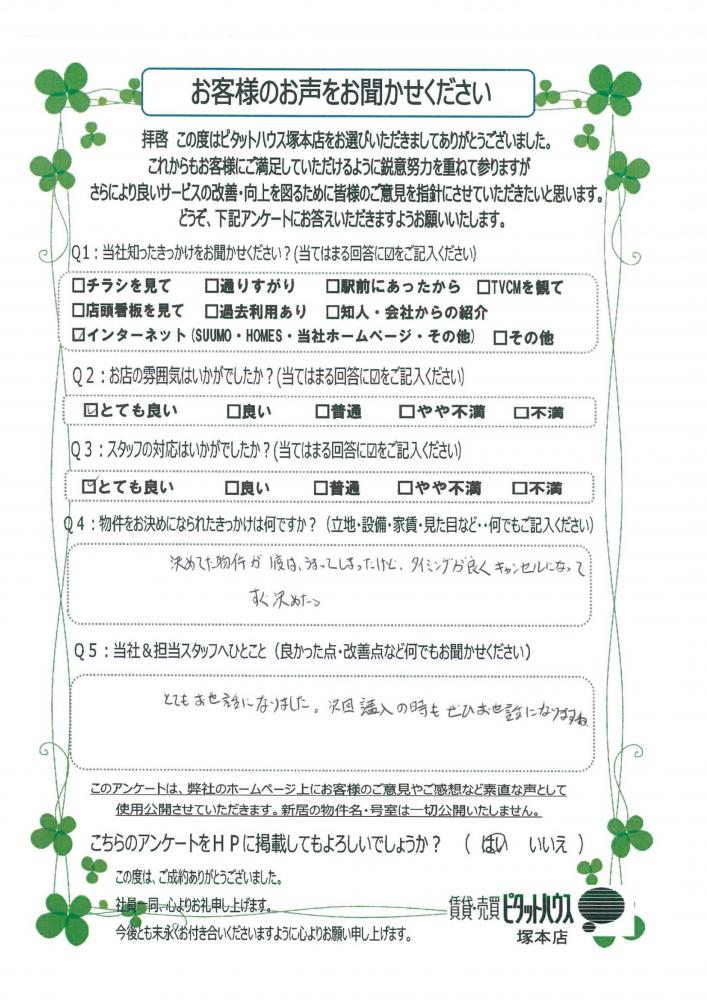 お客様のお声をお聞かせください
拝啓 この度はピタットハウス塚本店をお選びいただきましてありがとうございました。
これからもお客様にご満足していただけるように鋭意努力を重ねて参りますが
さらにより良いサービスの改善・向上を図るために皆様のご意見を指針にさせていただきたいと思います。
どうぞ、下記アンケートにお答えいただきますようお願いいたします。
Q1：当社知ったきっかけをお聞かせください？(当てはまる回答に☑をご記入ください)
□チラシを見て □通りすがり □駅前にあったから □TVCMを観て
□店頭看板を見て □過去利用あり □知人・会社からの紹介
☑インターネット(SUUMO・HOMES・当社ホームページ・その他) □その他
Q2：お店の雰囲気はいかがでしたか？(当てはまる回答に☑をご記入ください)
☑とても良い □良い □普通 □やや不満 □不満
Q3：スタッフの対応はいかがでしたか？(当てはまる回答に☑をご記入ください)
☑とても良い □良い □普通 □やや不満 □不満
Q4：物件をお決めになられたきっかけは何ですか？（立地・設備・家賃・見た目など・・何でもご記入ください）
決めてた物件が1度は、うまってしまったけど、タイミングが良くキャンセルになって
すぐ決めたっ
Q5：当社＆担当スタッフへひとこと（良かった点・改善点など何でもお聞かせください）
とてもお世話になりました。次回購入の時もぜひお世話になりますね
このアンケートは、弊社のホームページ上にお客様のご意見やご感想など素直な声として
使用公開させていただきます。新居の物件名・号室は一切公開いたしません。
こちらのアンケートをＨＰに掲載してもよろしいでしょうか？ （ はい いいえ ）
この度は、ご成約ありがとうございました。
社員一同、心よりお礼申し上げます。
今後とも末永くお付き合いくださいますように心よりお願い申し上げます。
賃貸・売買 ピタットハウス
塚本店